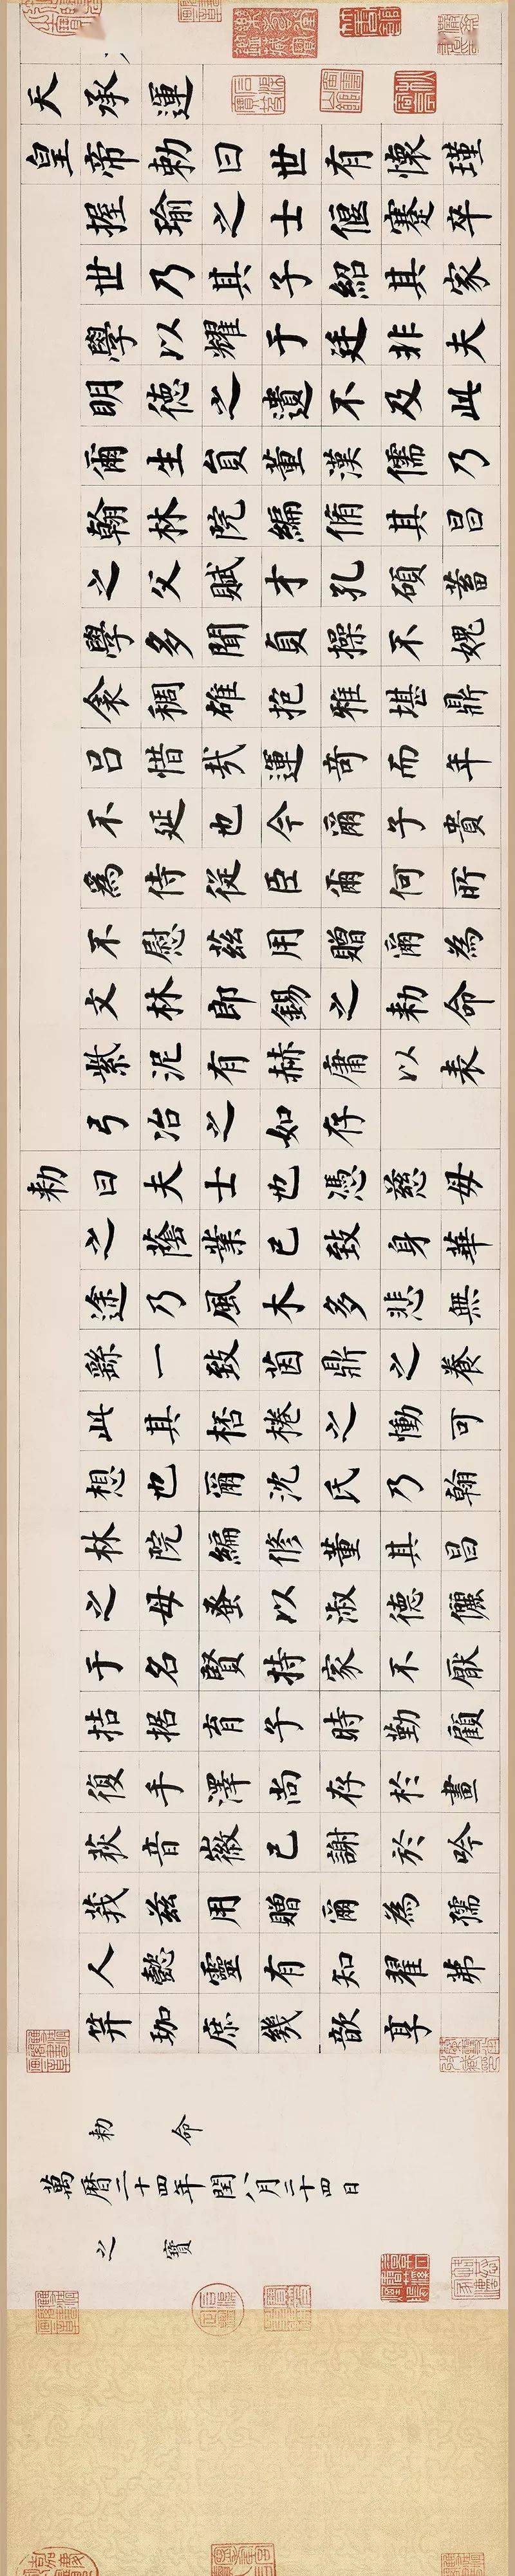 天承運
皇帝勅曰世有懷瑾
握瑜之士偃蹇卒
世乃其子紹其家
學以耀于廷非夫
明德之遺不及此
爾生員董漢儒乃
翰林院編脩其昌
之父賦才孔碩蓄
學多聞貞操不媿
衾裯雄抱雅堪鼎
呂惜哉運奇而年
不延也今爾子貴
為侍從臣爾何所
不慰茲用贈爾為
文林郎錫之勅命
紫泥有赫庸以表
弓冶之如存
勅曰夫士也憑慈母
之蔭業已致身華
途乃風木多悲無
繇一致茵鼎之養
此其桮棬之慟可
想也爾沈氏乃翰
林院編修董其昌
之母蚤以淑德儷
于名賢持家不厭
拮据育子時勤顧
復手澤尚存於畫
荻音徽已謝於吟
莪茲用贈爾為孺
人懿靈有知翟茀
笄珈庶幾歆享
勅命
萬曆二十四年閏八月二十四日
之寶